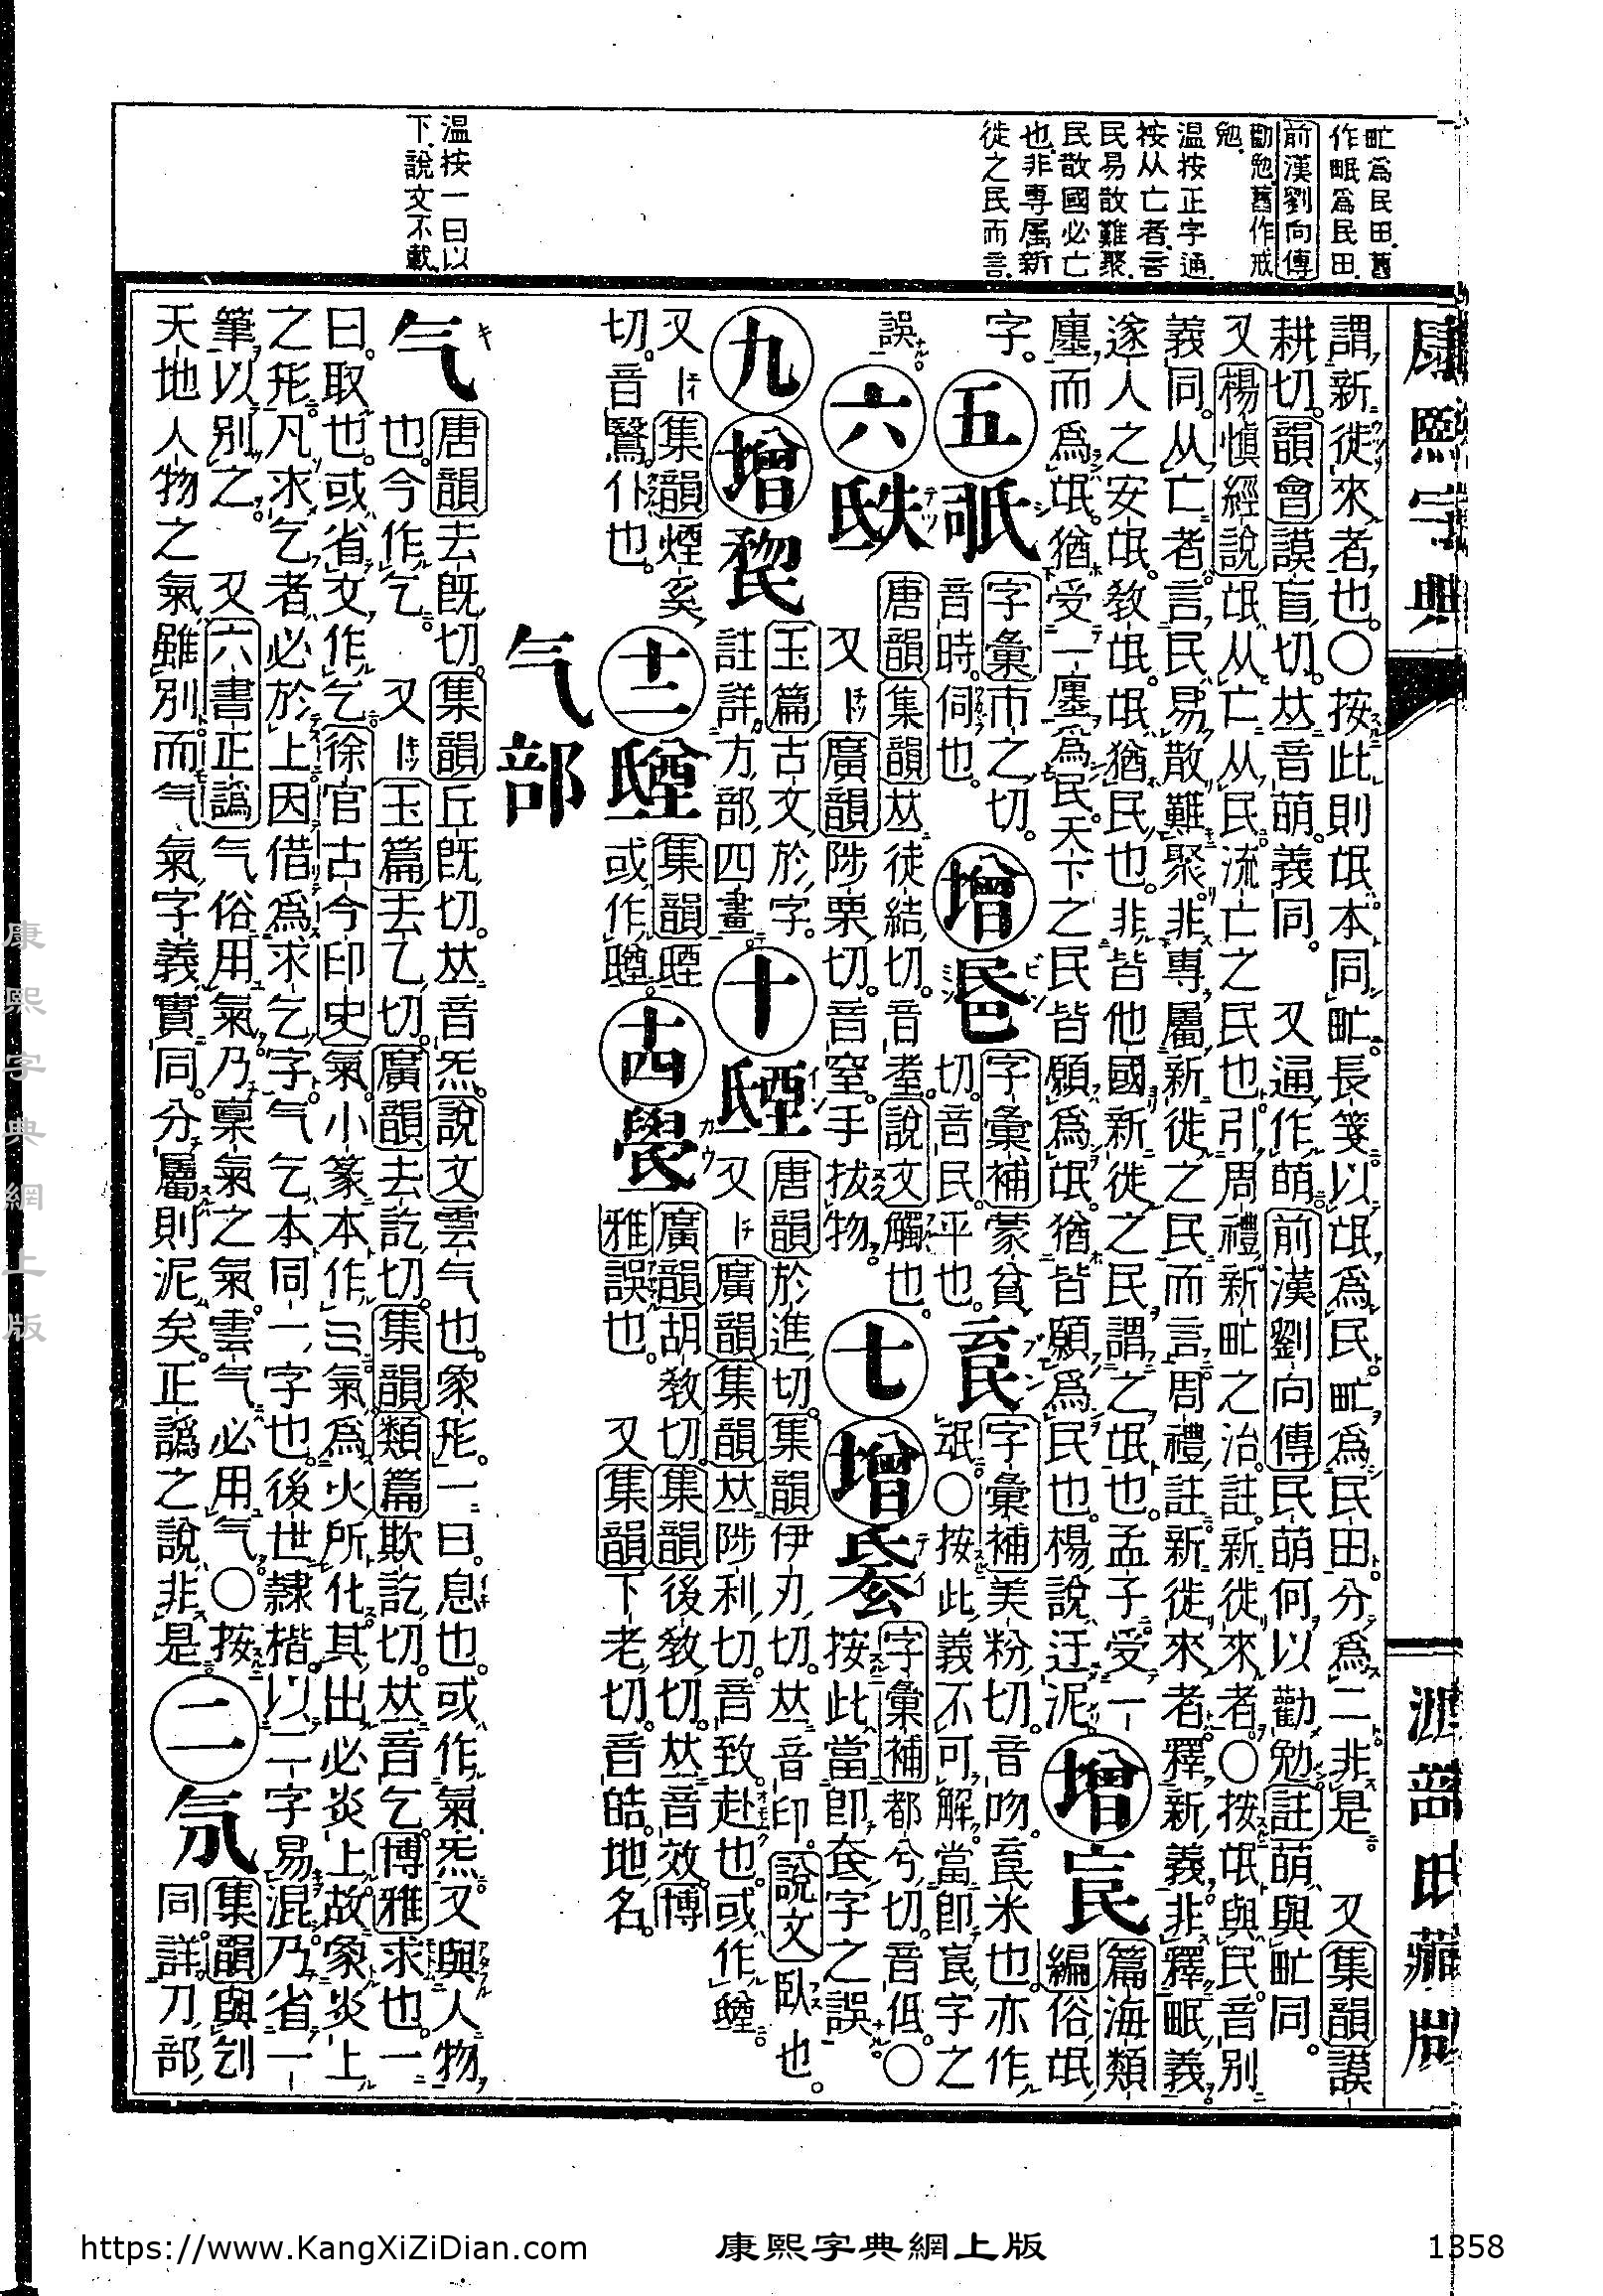 甿爲民田舊
作甿爲民田
前漢劉向傳
勸勉舊作戒
勉
温按正字通
按从亡者言
民易散難聚
民散國必亡
也非專属新
徙之民而言
温按一曰以
下說文不載
康熙字典
謂新徙來者也〇按此則氓本同甿長箋以氓爲民甿爲民田分爲二非是 又集韻謨
耕切韻會謨盲切𠀤音萌義同 又通作萌前漢劉向傳民萌何以勸勉註萌與甿同
又楊愼經說氓从亡从民流亡之民也引周禮新甿之治註新徙來者〇按氓與民音別
義同从亡者言民易散難聚非專屬新徙之民而言周禮註新徙來者釋新義非釋甿義
遂人之安氓敎氓氓猶民也非皆他國新徙之民謂之氓也孟子受一
廛而爲氓猶受一廛爲民天下之民皆願爲氓猶皆願爲民也楊說迂泥
增
篇海類
編俗氓
字
五
字彙市之切
音時伺也
增
字彙補蒙貧
切音民平也
字彙補美粉切音吻
米也亦作
〇按此義不可解當卽
字之
誤
六
唐韻集韻𠀤徒結切音耊說文觸也
又廣韻陟栗切音窒手拔物
七
增
字彙補都兮切音低〇
按此當卽
字之誤
九
增
玉篇古文於字
註詳方部四畫
十
唐韻於進切集韻伊刃切𠀤音印說文臥也
又廣韻集韻𠀤陟利切音致赴也或作
又集韻煙奚
切音鷖仆也
十二
集韻
或作
十四
廣韻胡敎切集韻後敎切𠀤音效博
雅誤也 又集韻下老切音皓地名
气部
气
唐韻去旣切集韻丘旣切𠀤音炁說文雲气也象形一曰息也或作氣炁又與人物
也今作乞 又玉篇去乙切廣韻去訖切集韻類篇欺訖切𠀤音乞博雅求也一
曰取也或省文作乞徐官古今印史氣小篆本作气氣爲火所化其出必炎上故象炎上
之形凡求乞者必於上因借爲求乞字气乞本同一字也後世隸楷以二字易混乃省一
筆以別之 又六書正譌气俗用氣乃稟氣之氣雲气必用气〇按
天地人物之氣雖別而气氣字義實同分屬則泥矣正譌之說非是
二
氘
集韻與刉
同詳刀部
康熙字典網上版
https://www.KangXiZiDian.com
康熙字典網上版
1358